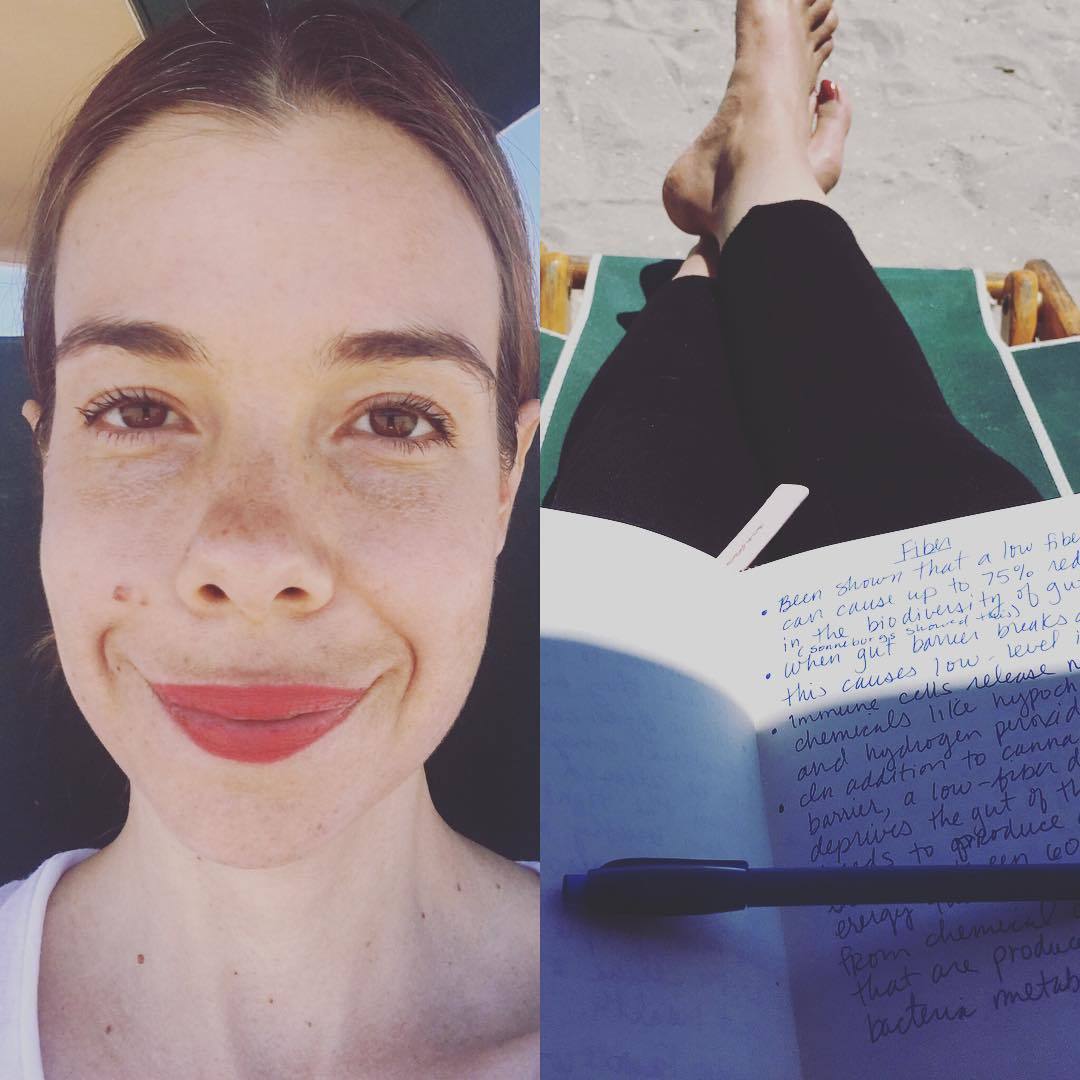 Fiber
• Been shown that a low fibe
can cause up to 75% red
in the biodiversity of gu
(sonneburgs showed this)
• When gut barrier breaks
this causes low-level i
• immune cells release m
chemicals like hypoch
and hydrogen peroxid
• In addition to canna
barrier, a low-fiber d
deprives the gut of th
needs to produce
een 60
energy
from chemical
that are produc
bacteria metab